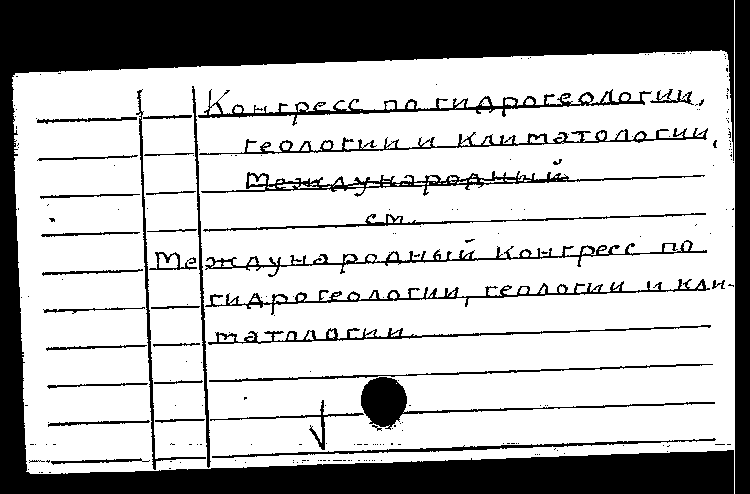 Конгресс по гидрогеологии,
геологии и климатологии,
Международный
см.
Международный конгресс по
гидрогеологии, геологии и кли-
матологии.